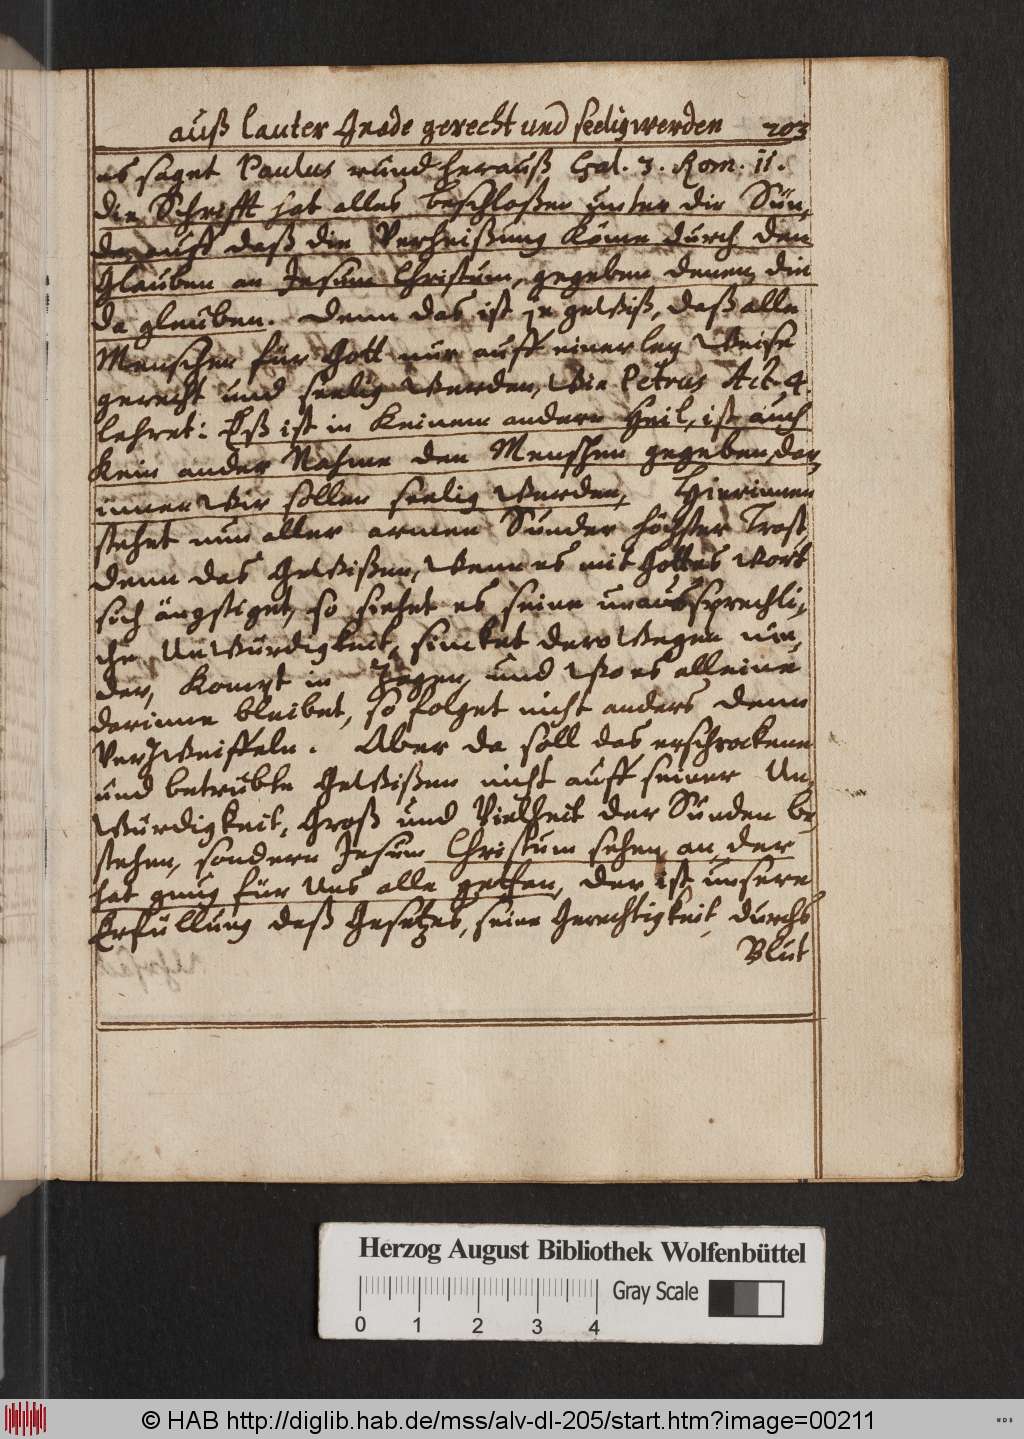 auß lauter Gnade gerecht und seelig werden 203
es saget Paulus rund herauß Gal. 3. Rom. 11.
die Schrifft hat alles beschloßen unter die Sün,
de, auff daß die Verheißung käme durch den
Glauben an Jesum Christum, gegeben denen, die
da gleuben. Denn das ist je gewiß, daß alle
Menschen für Gott nur auff einerley Weise
gerecht und seelig werden, wie Petrus Act. 4.
lehret: Eß ist in keinem andern Heil, ist auch
kein ander Nahme den Menschen gegeben, dar,
innen wir sollen seelig werden, Hierinnen
stehet nun aller armen Sünder höchster Trost
denn das Gewißen, wenn es mit Gottes wort
sich ängstiget, so siehet es seine unaussprechli,
che Unwürdigkeit, sincket derowegen nie,
der, kompt in Zagen, und wo es alleine
darinne bleibet, so folget nicht anders denn
Verzweiffeln. Aber da soll das erschrockene
und betrübte Gewißen nicht auff seiner Un,
würdigkeit, Groß und Vielheit der Sünden be,
stehen, sondern Jesum Christum sehen an, der
hat gnug für uns alle gethan, der ist unsere
Erfüllung deß Gesetzes, seine Gerechtigkeit, durchs
Blut
Herzog August Bibliothek Wolfenbüttel
Gray Scale
0 1 2 3 4
© HAB http://diglib.hab.de/mss/alv-dl-205/start.htm?image=00211